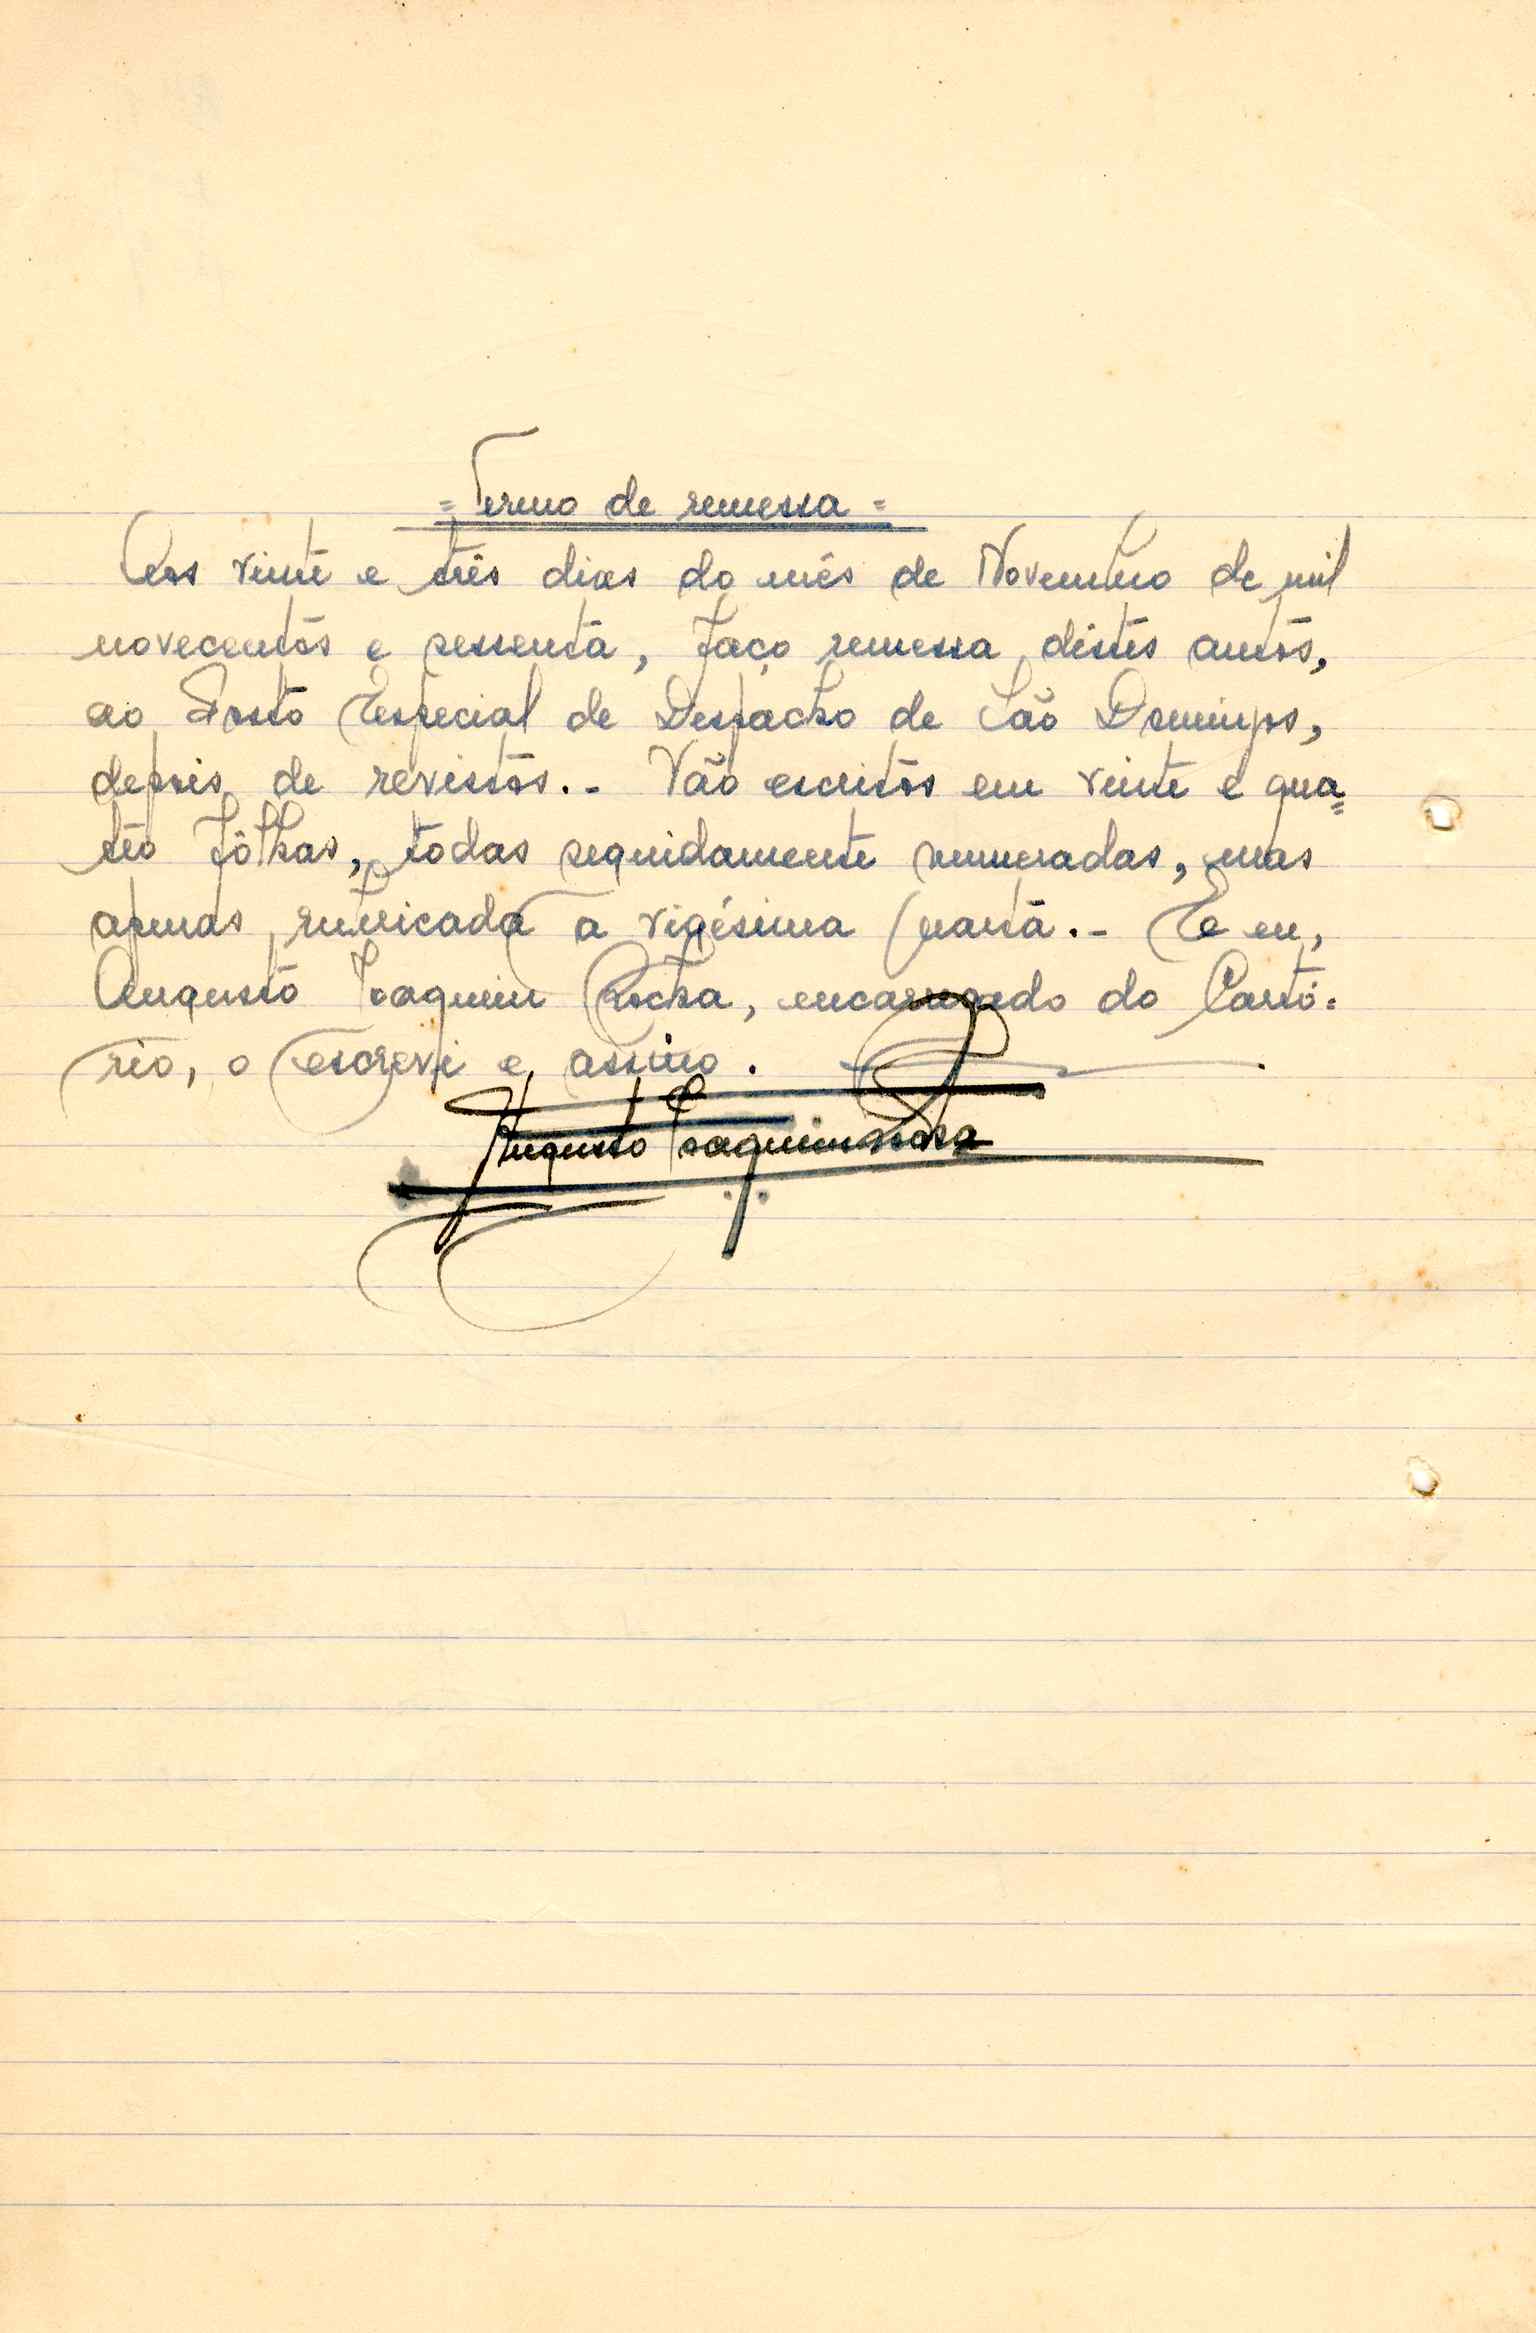 = Termo de remessa =
Aos vinte e três dias do mês de Novembro de mil
novecentos e sessenta, faço remessa dêstes autos,
ao Posto Especial de Despacho de São Domingos,
depois de revistos.- Vão escritos em vinte e qua=
tro fôlhas, todas seguidamente numeradas, mas
apenas rubricada a vigésima quarta.- E eu,
Augusto Joaquim Rocha, encarregado do Cartó=
rio, o escrevi e assino.
Augusto Joaquim Rocha